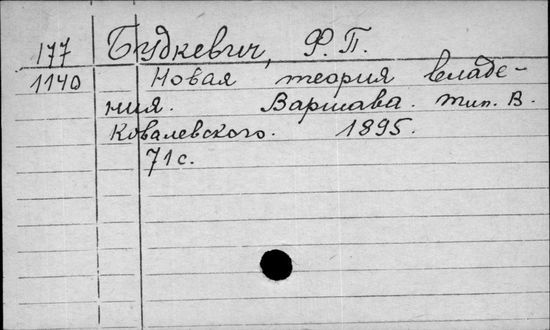 177 Будкевич, Ф. П.
1140 Новая теория владе-
ния. Варшава. тип. В.
Ковалевского. 1895.
71 с.